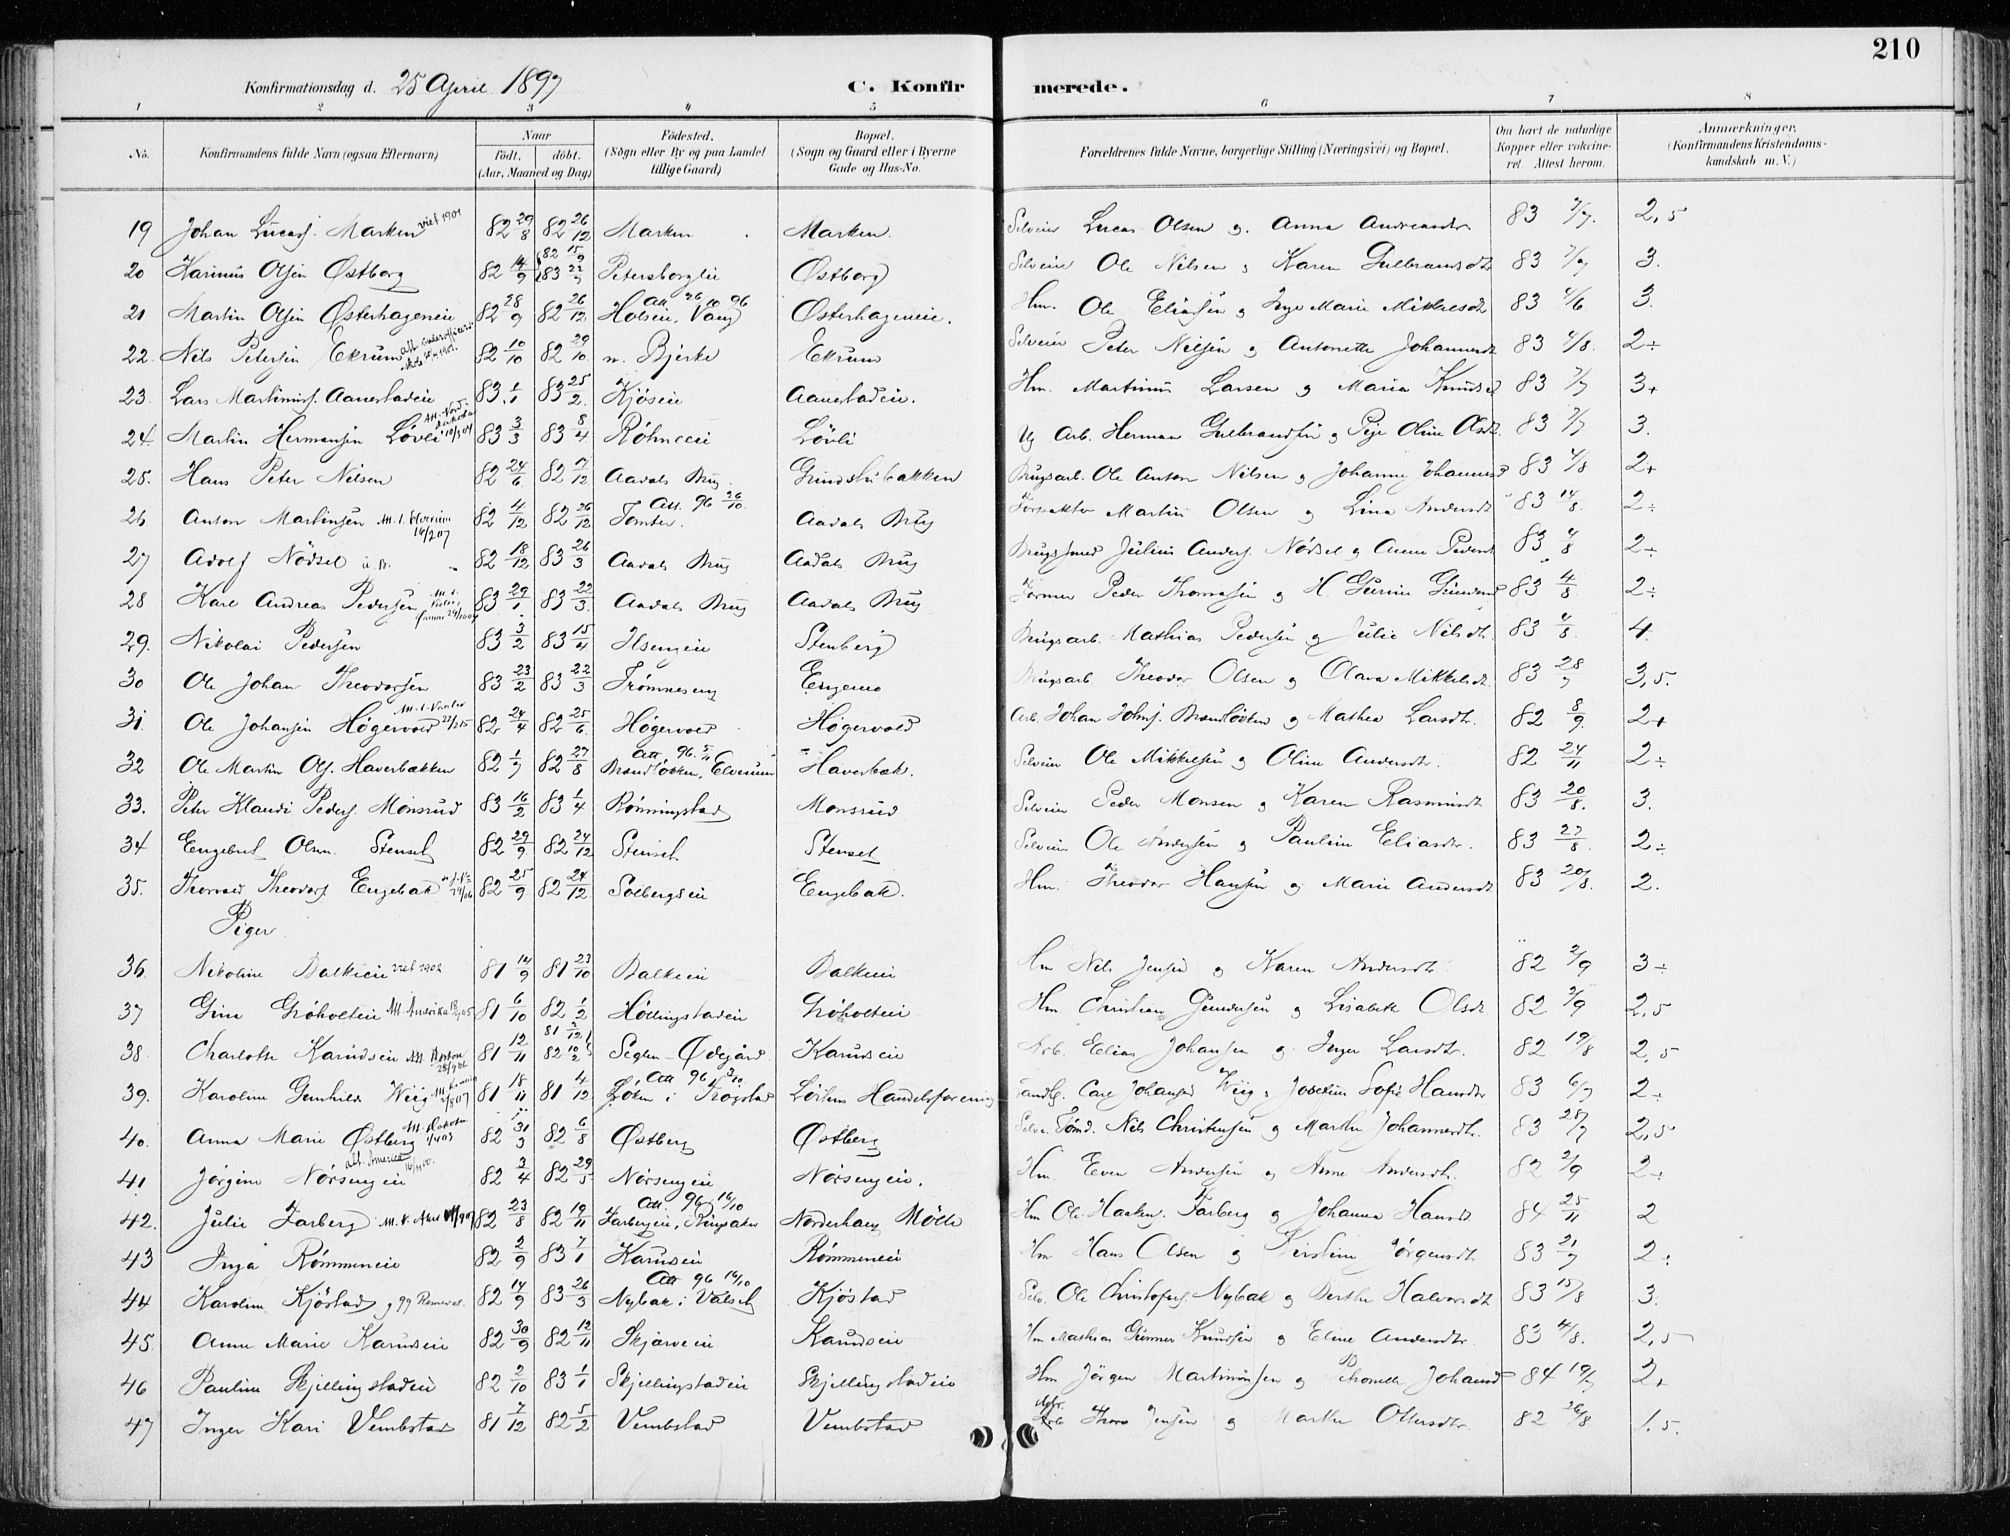 210
Konfirmationsdag d. 25 April 1897 C. Konfirmerede.
1 2 3 4 5 6 7 8
No. Konfirmandens fulde Navn (ogsaa Efternavn) Naar født, døbt. (Aar, Maaned og Dag) Fødested. (Sogn eller By og paa Landet tillige Gaard) Bopæl. (Sogn og Gaard eller i Byerne Gade og Hus-No. Forældrenes fulde Navne, borgerlige Stilling (Næringsvei) og Bopæl. Om havt de naturlige Kopper eller vakcineret. Attest herom. Anmærkninger, (Konfirmandens Kristendomskundskab m. V.)
19 Johan Lucass. Marken viet 1901 82 29/8 82 26/12 Marken Marken. Selveier Lucas Olsen og Anna Andreasdtr 83 7/7. 2,5
20 Karinus Olsen Østborg 82 14/9 82 15/9 83 Petersborgeie Østborg Selveier Ole Nilsen og Karen Gulbrandsdtr 83 7/7 3.
21 Martin Olsen Østerhageneie 82 28/9 82 26/12 Att 26/10 96 Holseie, Vang Østerhageneie. Hm. Ole Eliassen og Inge Marie Mikkelsdtr 83 4/6 3.
22. Nils Petersen Ekrum 82 10/10 82 29/10 n. Bjerke Ekrum Selveier Peter Nilsen og Antonette Johannesdtr 83 4/8. 2÷
23. Lars Martinius. Aanestadeie 83 1/1 83 25/2 Kjøseie Aanestadeie. Hm. Martinus Larsen og Maria Knudsd 83 7/7 3+
24. Martin Hermansen Løvli 83 3/3 83 8/4 Røhneeie Løvli Arb. Herman Gulbrandsen og Oline Olsdtr. 83 7/7 3.
25. Hans Peter Nilsen 82 24/6 82 Aadals Brug. Grindstubakken Brugsarb. Ole Anton Nilsen og Johanne Johannesd 83 4/8 2+
26 Anton Martinsen Att. t. Elverum 16/2 07 82 4/12 82 26/12 Att. 96 26/10. Tomter. Aadals Brug Martin Olsen og Lina Andersdt 83 14/8. 2÷
27 Adolf Nødsel 82 18/12 83 26/3 Aadals Brug Aadals Brug Brugssmed Julius Anders. Nødsel og Anne Pedersd 83 4/8 2÷
28 Karl Andreas Pedersen 83 29/1 83 22/3. Aadals Brug Aadals Brug Former Peder Thomassen og H. Gurine 83 4/8. 2÷
29. Nikolai Pedersen 83 3/2 83 15/4 Ilsengeie Stenberg Brugsarb. Mathias Pedersen og Julie Nilsdt. 83 4/8. 4.
30 Ole Johan Theodorsen 83 23/2 83 22/3 Trømneseng Engemo Brugsarb Theodor Olsen og Olava Mikkelsdt. 83 28/7 3,5.
31. Ole Johansen Høgervold 82 24/4 82 25/6 Høgervold Høgervold Arb. Johan Johns. Brandløkken og Mathea Larsdt. 82 8/9. 2+
32 Ole Martin Ols. Haverbakken 82 1/7 82 27/8 Att. 96. 5/11 Brandløkken, Elverum Haverbak. Selveier Ole Mikkelsen og Oline Andersdtr. 82 24/11 2÷
33. Peter Klaudi Peders. Monsrud 83 16/2 83 1/4 Rønningstad Monsrud Selveier Peder Monsen og Karen Rasmusdt. 83 20/8. 3.
34 Engebret Olsen. Stenset 82 29/9 82 24/12 Stenset Stenset Selveier Ole Andersen og Pauline Eliasdtr. 83 27/8. 2÷
35. Thorvald Theodors. Engebak 82 25/9 82 24/12 Solbergseie Engebak. Hm. Theodor Hansen og Marie Andersdt 83 20/8. 2.
Piger
36. Nikoline Balkeeie viet 1902 81 14/9 81 23/10 Balkeeie Balkeeie Hm Nils Jensen og Karen Andersdtr 82 2/9 3÷
37 Gina Grøholteie Att. Amerika 81 6/10 82 1/2 Høllingstadeie Grøholteie Hm Christian Gundersen og Lisabeth Olsdt 82 2/9. 2,5
38. Charlotte Karudseie 81 12/11 81 2/12 82 10/2 Seglen - Ødegård Karudseie Arb. Elias Johansen og Inger Larsdtr. 82 19/8 2,5
39. Karoline Gunhilda Wiig 81 18/11 81 4/12 Att 96 3/10 Løken i Trøgstad Løitens Handelsforening Landh. Carl Johansen Wiig og Josefine Sofie Hansdtr 83 6/7 2÷
40. Anna Marie Østberg 82 31/3 82 6/8 Østberg Østberg Nils Christensen og Marthe Johannesdtr. 83 28/7 2,5
41 Jørgine Nørsengeie att. Amerika 16/4 00. 82 3/4 82 29/5 Nørsengeie Nørsengeie. Hm Even Andersen og Anne Andersdtr. 82 2/9 2÷
42. Julie Farberg 82 23/8 82 19/11 Att. 96 16/10 Farbergeie, Ringsaker Norderhaug Mølle Hm Ole Haaken. Farberg og Johanna Hansdt. 84 25/11 2
43 Inga Rømmeneie 82 2/9 83 7/1 Karudseie Rømmeneie Hm Hans Olsen og Kirstine Jørgensdt. 83 21/7 2÷
44 Karoline Kjøstad 82 14/9 83 26/3 Att 96 16/10 Nybak i Valset Kjøstad Selv. Ole Christophers. Nybak og Berthe Halvorsdt 83 15/8 3.
45. Anne Marie Karudseie 82 30/9 82 12/11 Skjærveie Karudseie Hm Mathias Gunner Knudsen og Eline Andersdtr. 83 4/8. 2,5
46 Pauline Skjellingstadeie 82 2/10 83 1/1 Skjellingstadeie Skjellingstadeie Hm Jørgen Martiniussen og Pernelle Johansd 84 19/7 2+
47 Inger Kari Vembstad 81 7/12 82 5/2 Vembstad Vembstad Arb Thore Jensen og Marthe Ottersdtr. 82 26/8 1.5.